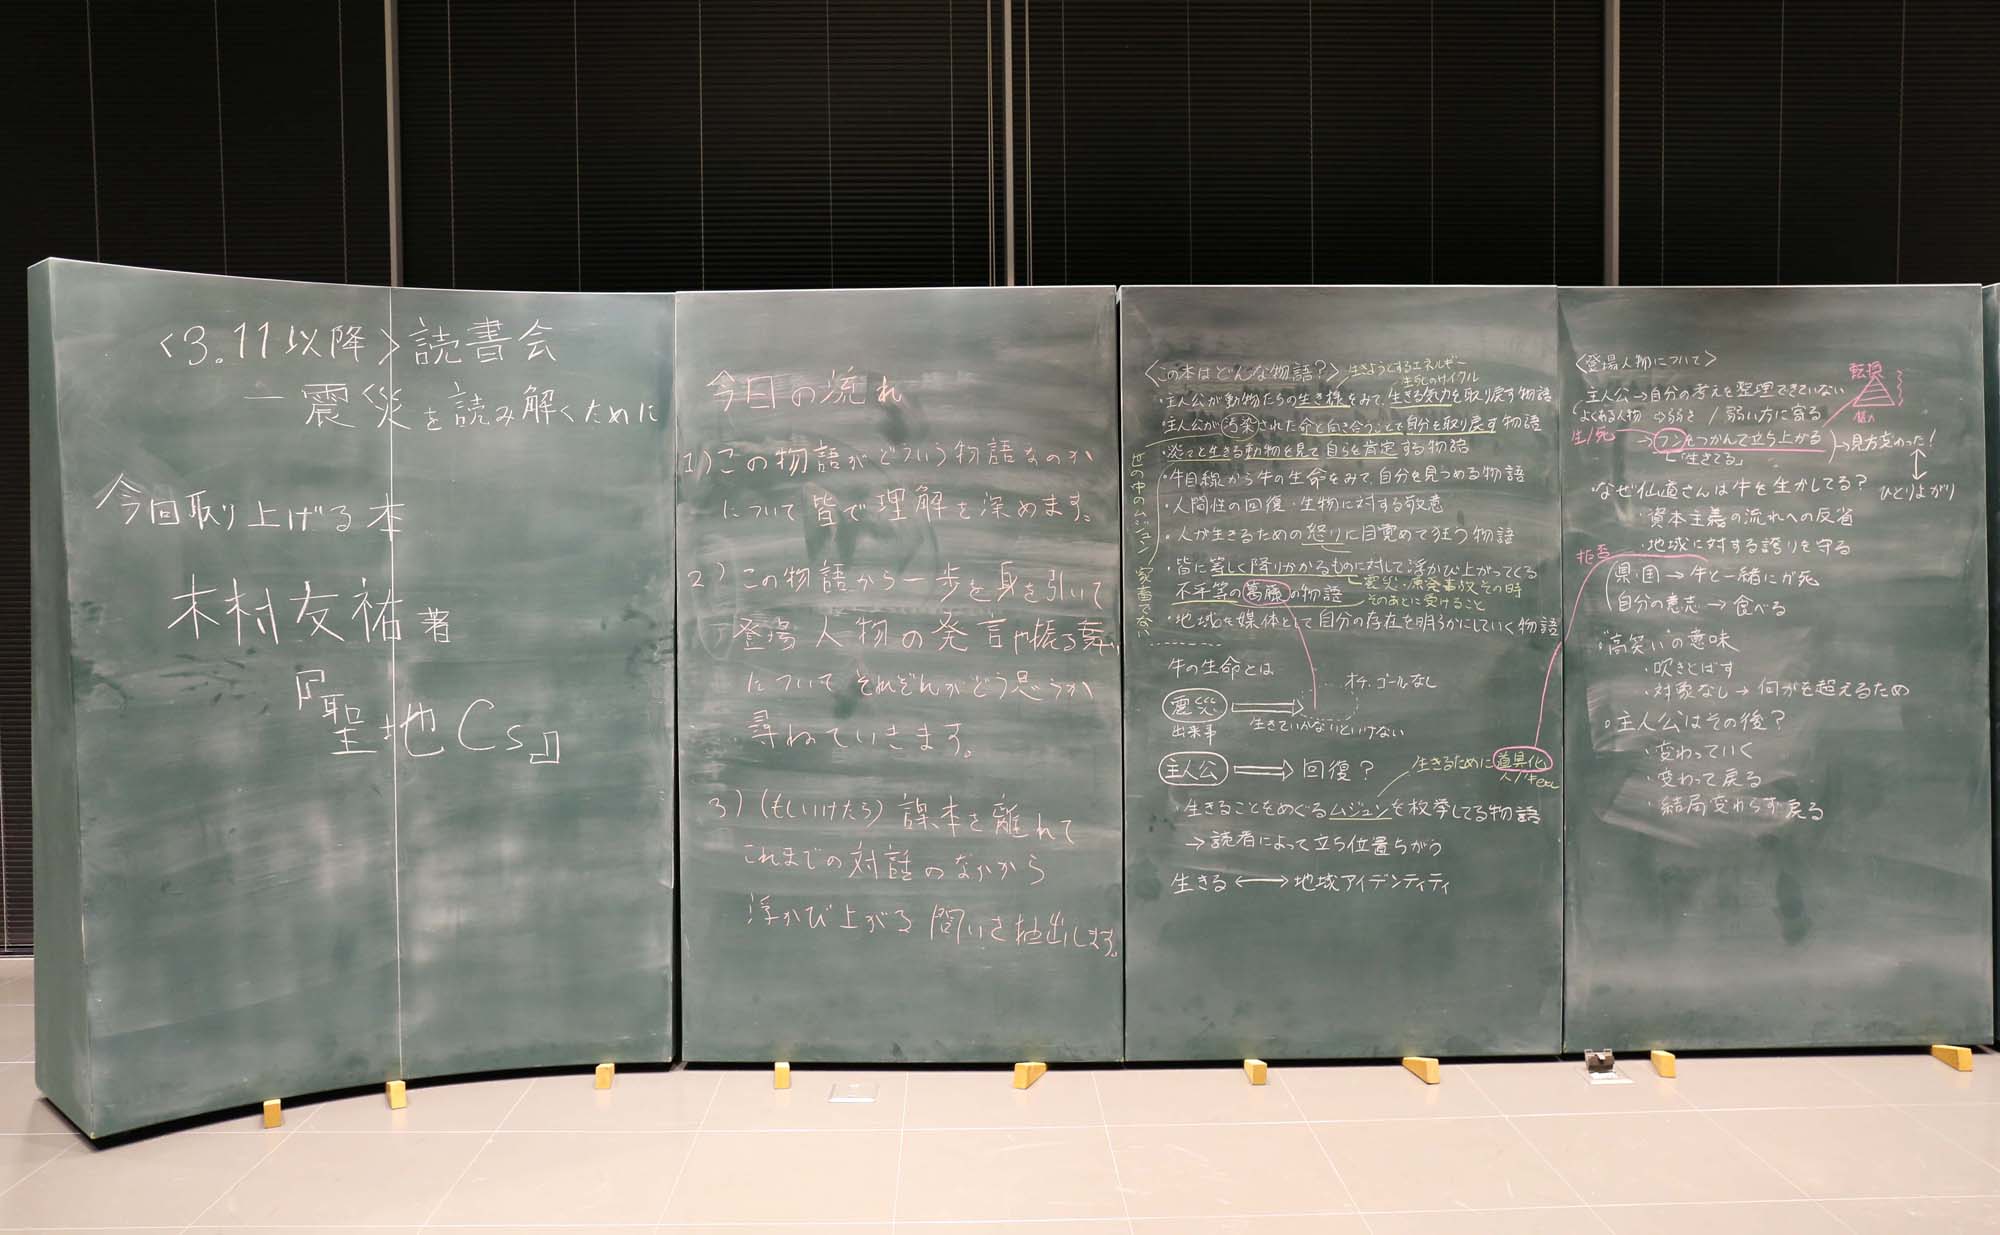 〈3.11以降〉読書会
－震災を読み解くために
今回取り上げる本
木村友祐著
『聖地Cs』
今日の流れ
1)この物語がどういう物語なのか
について皆で理解を深めます。
2)この物語から一歩を身を引いて
登場人物の発言や振る舞い
についてそれぞれがどう思うか
尋ねていきます。
3)(もしいけたら)課本を離れて
これまでの対話のなかから
浮かび上がる問いを抽出します。
〈この本はどんな物語?〉
生きようとするエネルギー
生死のサイクル
・主人公が動物たちの生き様をみて、生きる気力を取り戻す物語
・主人公が汚染された命と向き合うことで自分を取り戻す物語
・淡々と生きる動物を見て自らを肯定する物語
・牛目線から牛の生命をみて、自分を見つめる物語
・人間性の回復・生物に対する敬意
・人が生きるための怒りに目覚めて狂う物語
・皆に等しく降りかかるものに対して浮かび上がってくる
不平等の葛藤の物語
震災・原発事故 その時
そのあとに受けること
・地域を媒体として自分の存在を明らかにしていく物語
世の中のムジュン
家畜でない
牛の生命とは
オチ、ゴールなし
震災
出来事
生きていかないといけない
主人公
回復?
生きるために道具化
人/牛etc
・生きることをめぐるムジュンを枚挙してる物語
→読者によって立ち位置ちがう
生きる⟷地域アイデンティティ
〈登場人物について〉
転換
主人公→自分の考えを整理できていない
よくある人物
/弱い方に寄る
生/死
→フンをつかんで立ち上がる
「生きてる」
→見方変わった!
ひとりよがり
・なぜ仙道さんは牛を生かしてる?
・資本主義の流れへの反省
・地域に対する誇りを守る
拒否
県・国→牛と一緒にが死
自分の意志→食べる
・"高笑い"の意味
・吹きとばす
・対象なし→何かを超えるため
・主人公はその後?
・変わっていく
・変わって戻る
・結局変わらず戻る